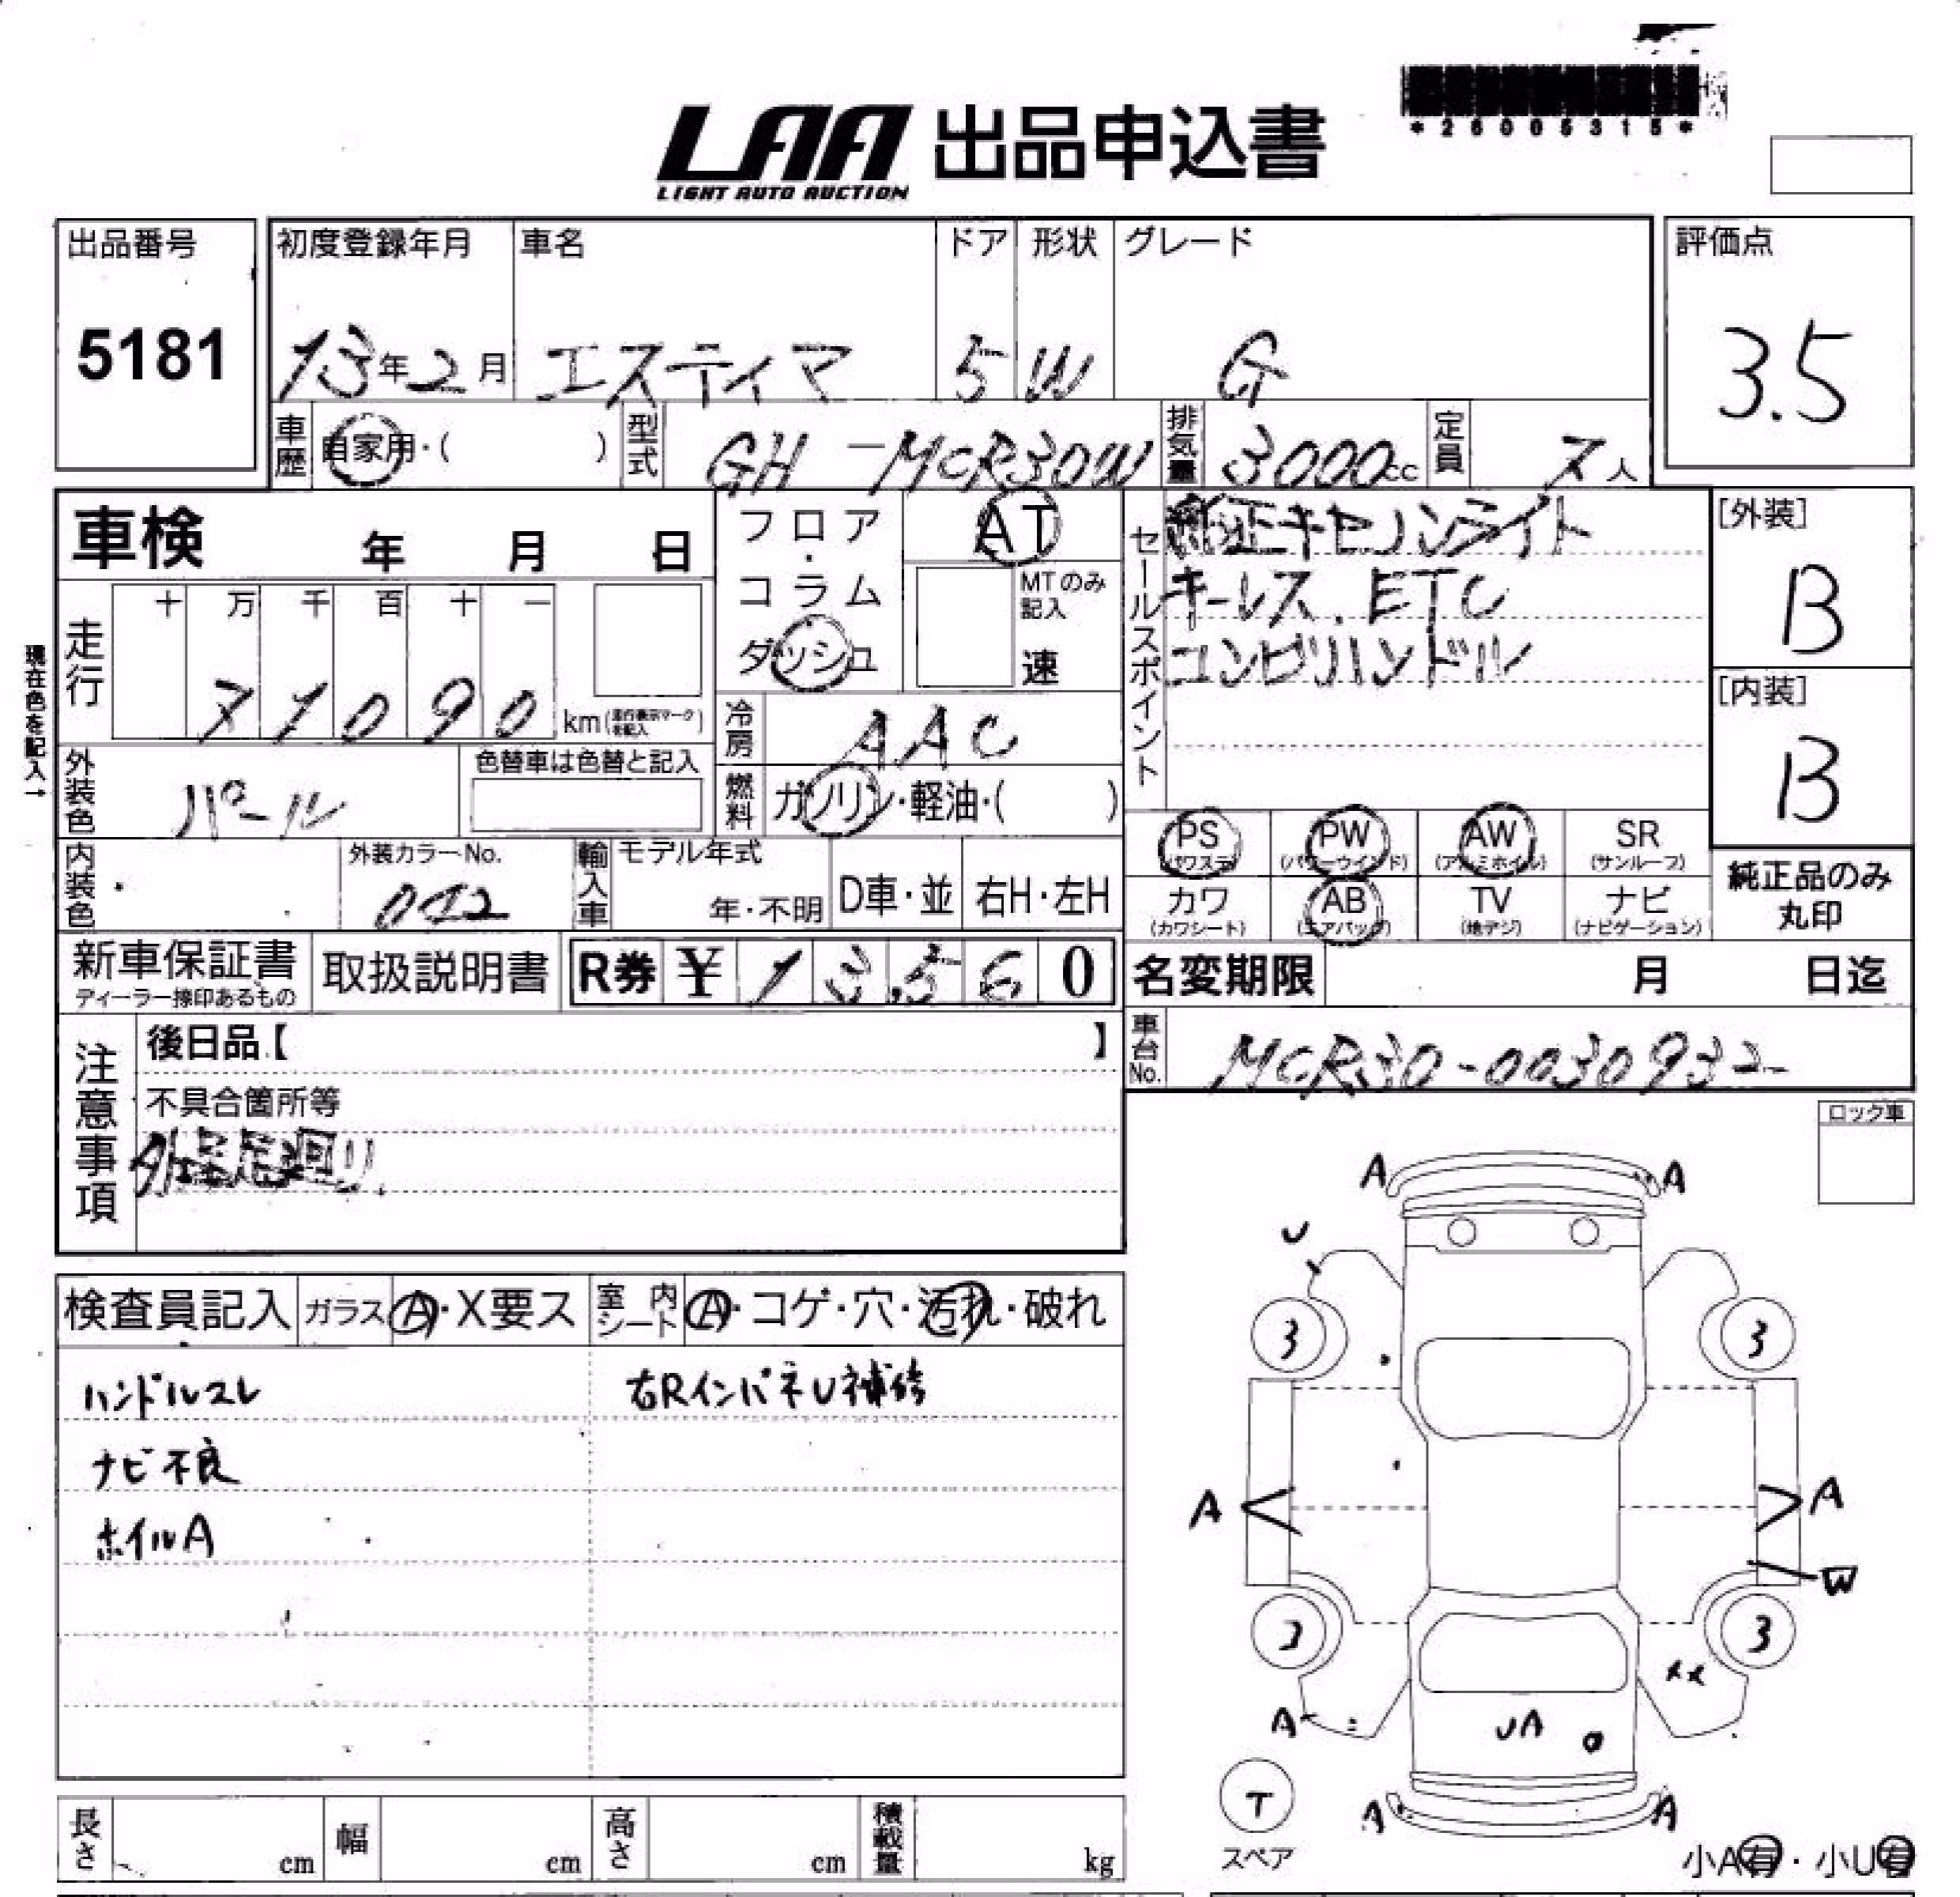 *26005315*
LAA 出品申込書
LIGHT AUTO AUCTION
出品番号 初度登録年月 車名 ドア 形状 グレード 評価点
5181 13年2月 エスティマ 5 W G 3.5
車歴 自家用・( ) 型式 GH-MCR30W 排気量 3000cc 定員 7人
車検 年 月 日 フロア・コラム ダッシュ AT MTのみ記入 速
セールスポイント
純正キセノンライト
キーレス.ETC
コンビハンドル
[外装] B
[内装] B
現在色を記入→
走行 十 万 千 百 十 一
71090 km(走行表示マークを記入)
冷房 AAC
外装色 パール 色替車は色替と記入 燃料 ガソリン・軽油・( )
PS (パワステ) PW (パワーウインド) AW (アルミホイル) SR (サンルーフ)
カワ (カワシート) AB (エアバッグ) TV (地デジ) ナビ (ナビゲーション)
純正品のみ
丸印
内装色 外装カラーNo. 輸入車 モデル年式 年・不明 D車・並 右H・左H
新車保証書 取扱説明書 R券 ¥ 13,560 名変期限 月 日迄
ディーラー捺印あるもの
注意事項 後日品【 】
車台No. MCR30-0030932
不具合箇所等
ロック車
検査員記入 ガラス A・X要ス 室内シート A・コゲ・穴・汚れ・破れ
ハンドルスレ 右RインパネU補修
ナビ不良
ホイルA
A A
U
3 3
A A
W
3
A UA
T
スペア
A A
小A有・小U有
長さ cm 幅 cm 高さ cm 積載量 kg